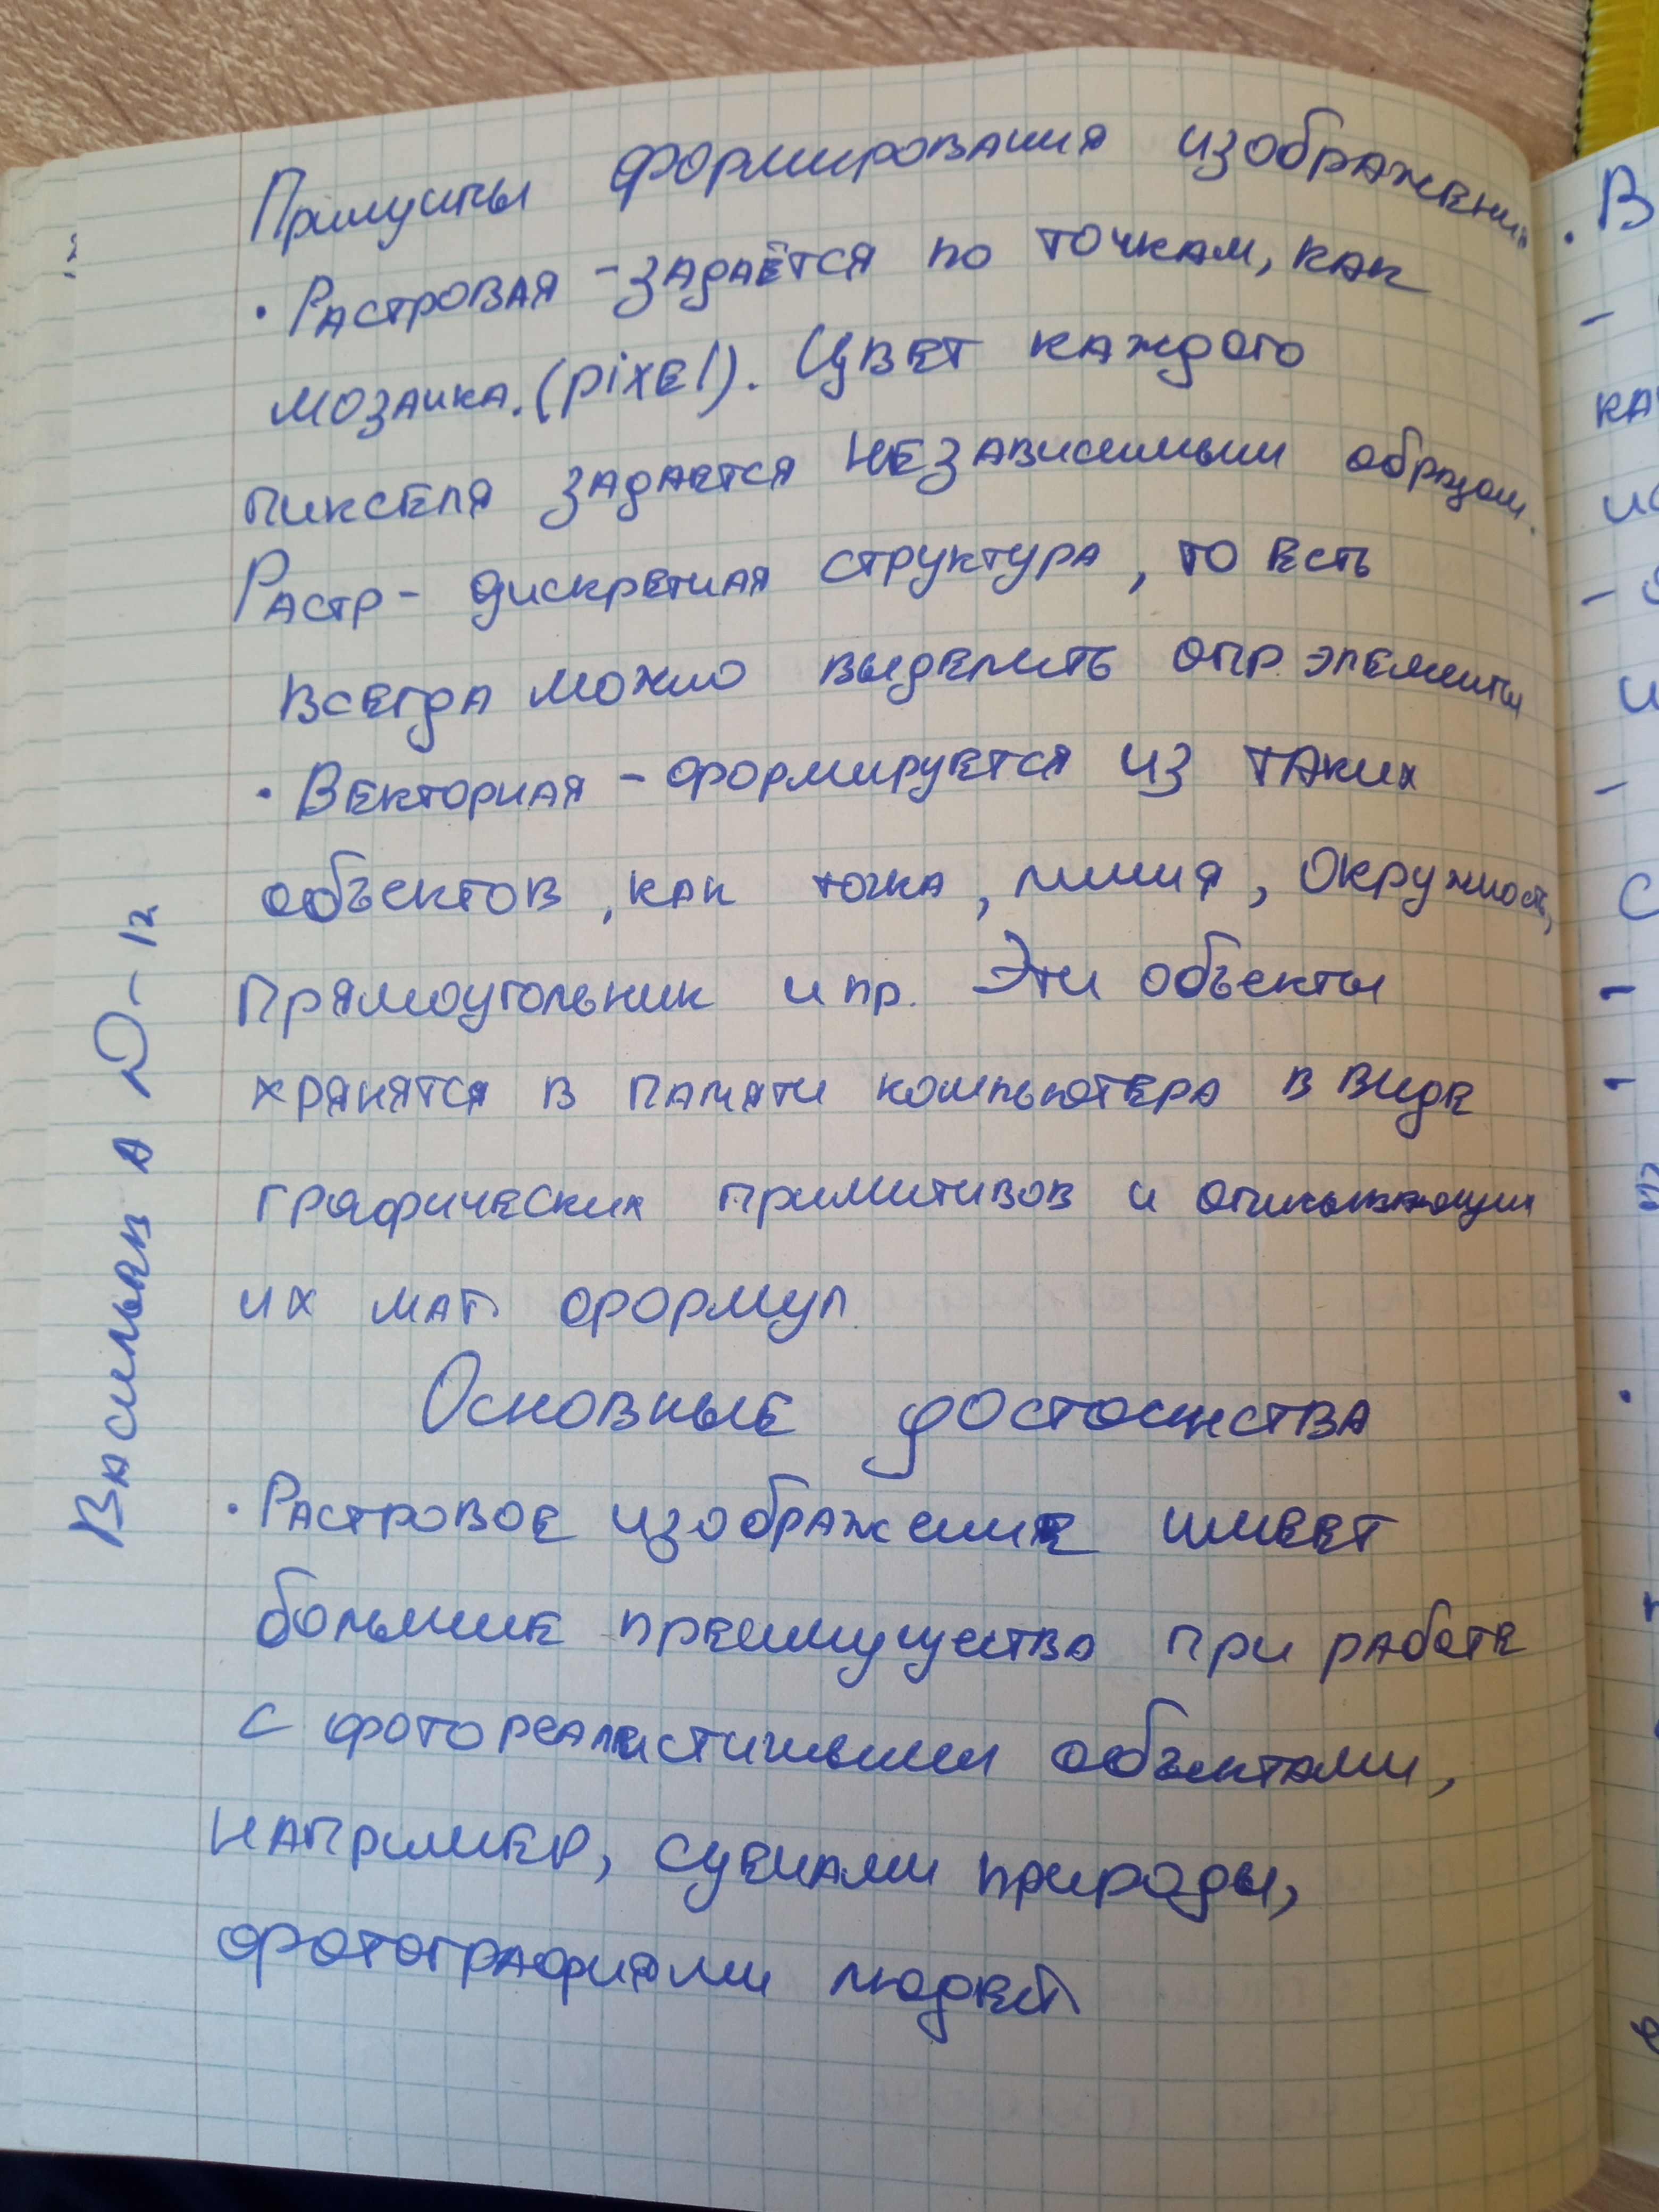 Принципы формирования изображения
• Растровая - задаётся по точкам, как
мозаика. (pixel). Цвет каждого
пикселя задается независимым образом.
Растр - дискретная структура, то есть
всегда можно выделить опр. элементы
• Векторная - формируется из таких
объектов, как точка, линия, окружность,
прямоугольник и пр. Эти объекты
хранятся в памяти компьютера в виде
графических примитивов и описывающих
их мат. формул.
Основные достоинства
• Растровое изображение имеет
большие преимущества при работе
с фотореалистичными объектами,
например, сценами природы,
фотографиями людей
Васильев А Д-12